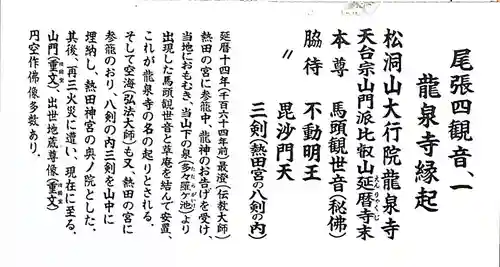 尾張四観音、一
龍泉寺縁起
松洞山大行院龍泉寺
天台宗山門派比叡山延暦寺末
えんりゃくじ
本尊 馬頭観世音(秘佛)
脇待 不動明王
〃 毘沙門天
三剣(熱田宮の八剣の内)
延暦十四年(千百六十四年前)最澄(伝教大師)
熱田の宮に参籠中、龍神のお告げを受け、
当地におもむき、当山下の泉(多々羅ヶ池)より
出現した馬頭観世音と草庵を結んで安置、
これが龍泉寺の名の起りとされる。
そして空海(弘法大師)も又、熱田の宮に
参籠のおり、八剣の内三剣を山中に
埋納し、熱田神宮の奥ノ院とした。
其後、再三火災に遭い、現在に至る、
山門(重文)、出世地蔵尊像(重文)
円空作佛像多数あり。